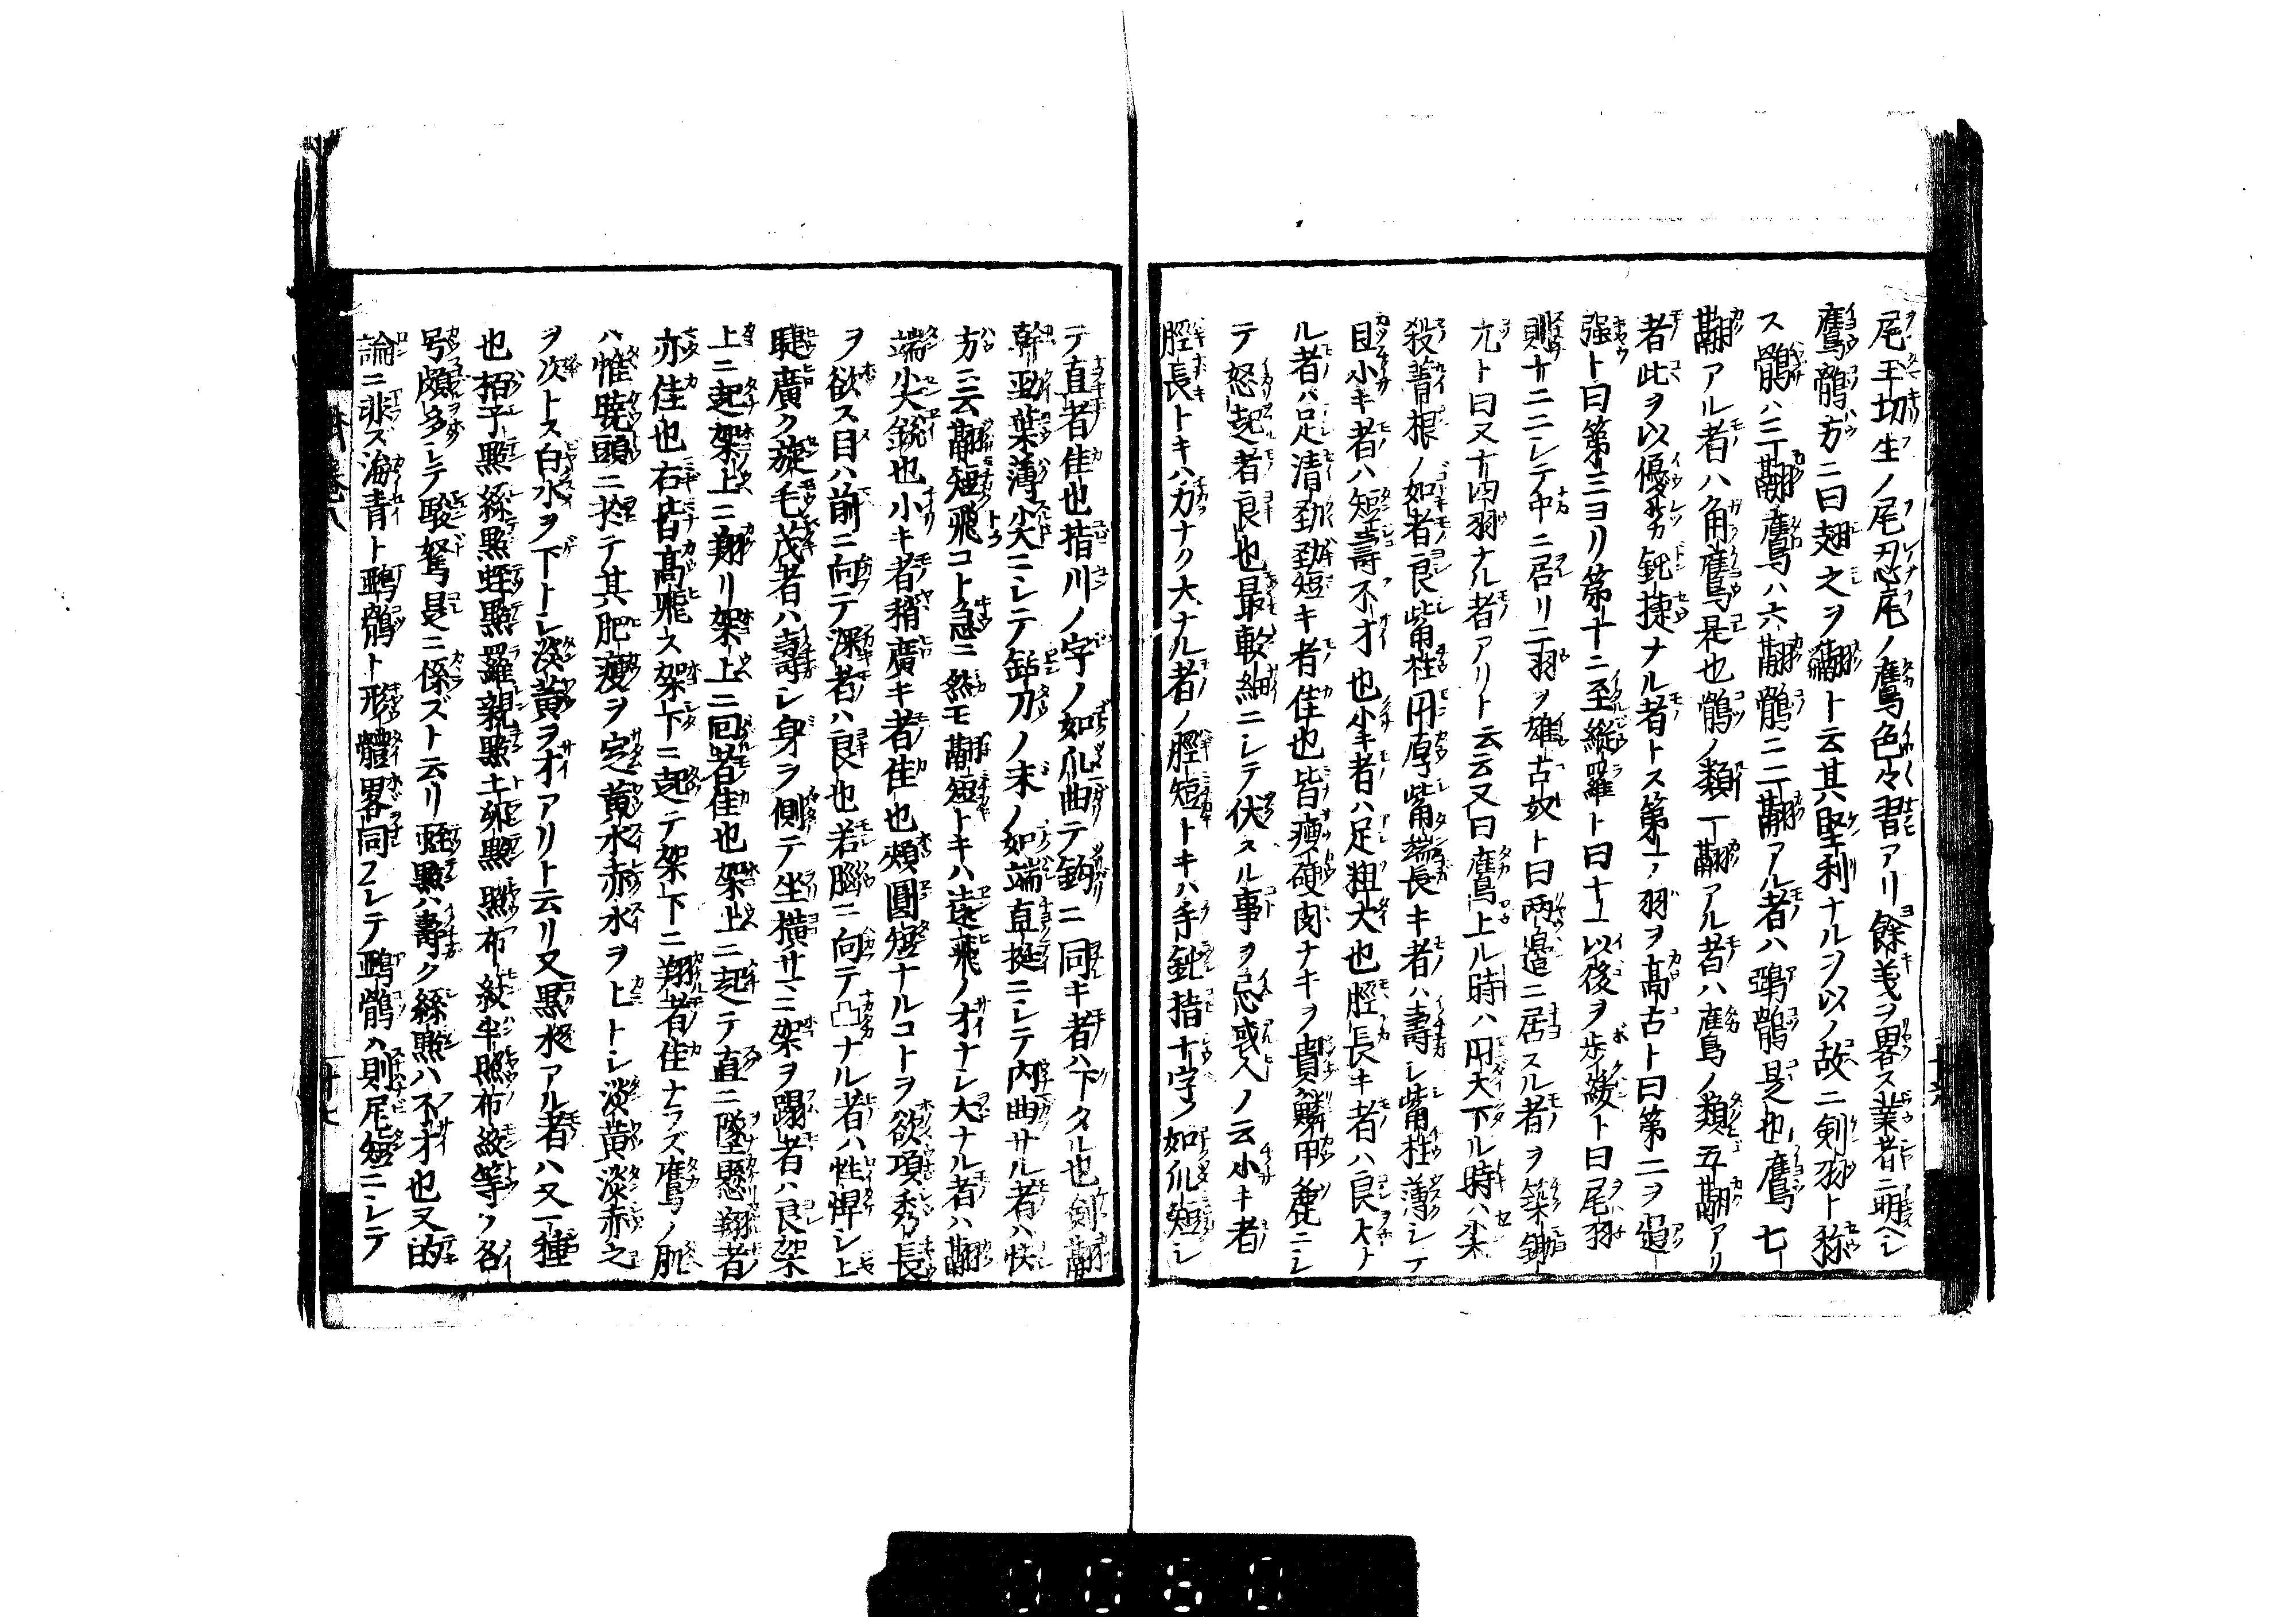 尾王切生ノ尾忍尾ノ鷹色々習アリ餘義ヲ畧ス業者ニ明ヘシ
鷹鶻方ニ曰翅之ヲ翮ト云其堅利ナルヲ以ノ故ニ剣羽ト称
ス鶻ハ三丁翮鷹ハ六翮鶻ニ二翮アル者ハ鵶鶻是也鷹七
翮アル者ハ角鷹是也鶻ノ類一翮アル者ハ鷹ノ類五翮アリ
者此ヲ以優劣鈍捷ナル者トス第一ノ羽ヲ髙古ト曰第二ヲ
强ト曰第三ヨリ第十ニ至縦羅ト曰十一以後ヲ歩綾ト曰尾羽
則十二ニシテ中ニ居リ二羽ヲ雄古奴ト曰両邉ニ居スル者ヲ築
尢ト曰又十四羽ナル者アリト云云又曰鷹上ル時ハ円大下ル時ハ尖
殺菁根ノ如者良觜柱円厚觜端長キ者ハ壽シ觜柱薄シテ
目小キ者ハ短壽不才也小キ者ハ足粗大也脛長キ者ハ良大ト
ル者ハ足清勁勁短キ者佳也皆痩硬肉ナキヲ貴鱗甲麁ニシ
テ怒起者良也最軟細ニシテ伏スル事ヲ忌或人ノ云小キ者
脛長トキハ力ナク大ナル者ノ脛短トキハ手鈍指十字ノ如爪短シ
テ直者佳也指川ノ字ノ如爪曲テ鈎ニ同キ者ハ下タル也剣翮
幹勁葉薄尖ニシテ鉆刀ノ末ノ如端直挺ニシテ内曲サル者ハ快
方ニ云翮短飛コト急ニ然モ翮短トキハ遠飛ノ才ナシ大ナル者ハ翮
端尖銳也小キ者稍廣キ者佳也頰圓短ナルコトヲ欲項秀長
ヲ欲ス目ハ前ニ向テ深者ハ良也若腦ニ向テ凸ナル者ハ性悍シ上
睫廣ク旋毛茂者ハ壽シ身ヲ側テ坐横サニ架ヲ踢者ハ良架
上ニ起架上ニ翔リ架上ニ回者佳也架上ニ起テ直ニ墜懸翔者
亦佳也右皆髙飛ス架下ニ起テ架下ニ翔者佳ナラズ鷹ノ肥
ハ惟曉頭ニ於テ其肥瘦ヲ定黄水赤水ヲ上トシ淡黄淡赤之
ヲ次トス白水ヲ下トシ淡黄ヲオアリト云リ又黒水アル者ハ又一種
也栢子點絲點蛭點羅親點土卵點點布紋半點布紋等ノ名
号頗多シテ駿驽是ニ係ズト云リ蛭點ハ壽ク絲點ハ不才也又的
論ニ非ス海青ト鵶鶻ト形體畧同フシテ鵶鶻ハ則尾短ニシテ